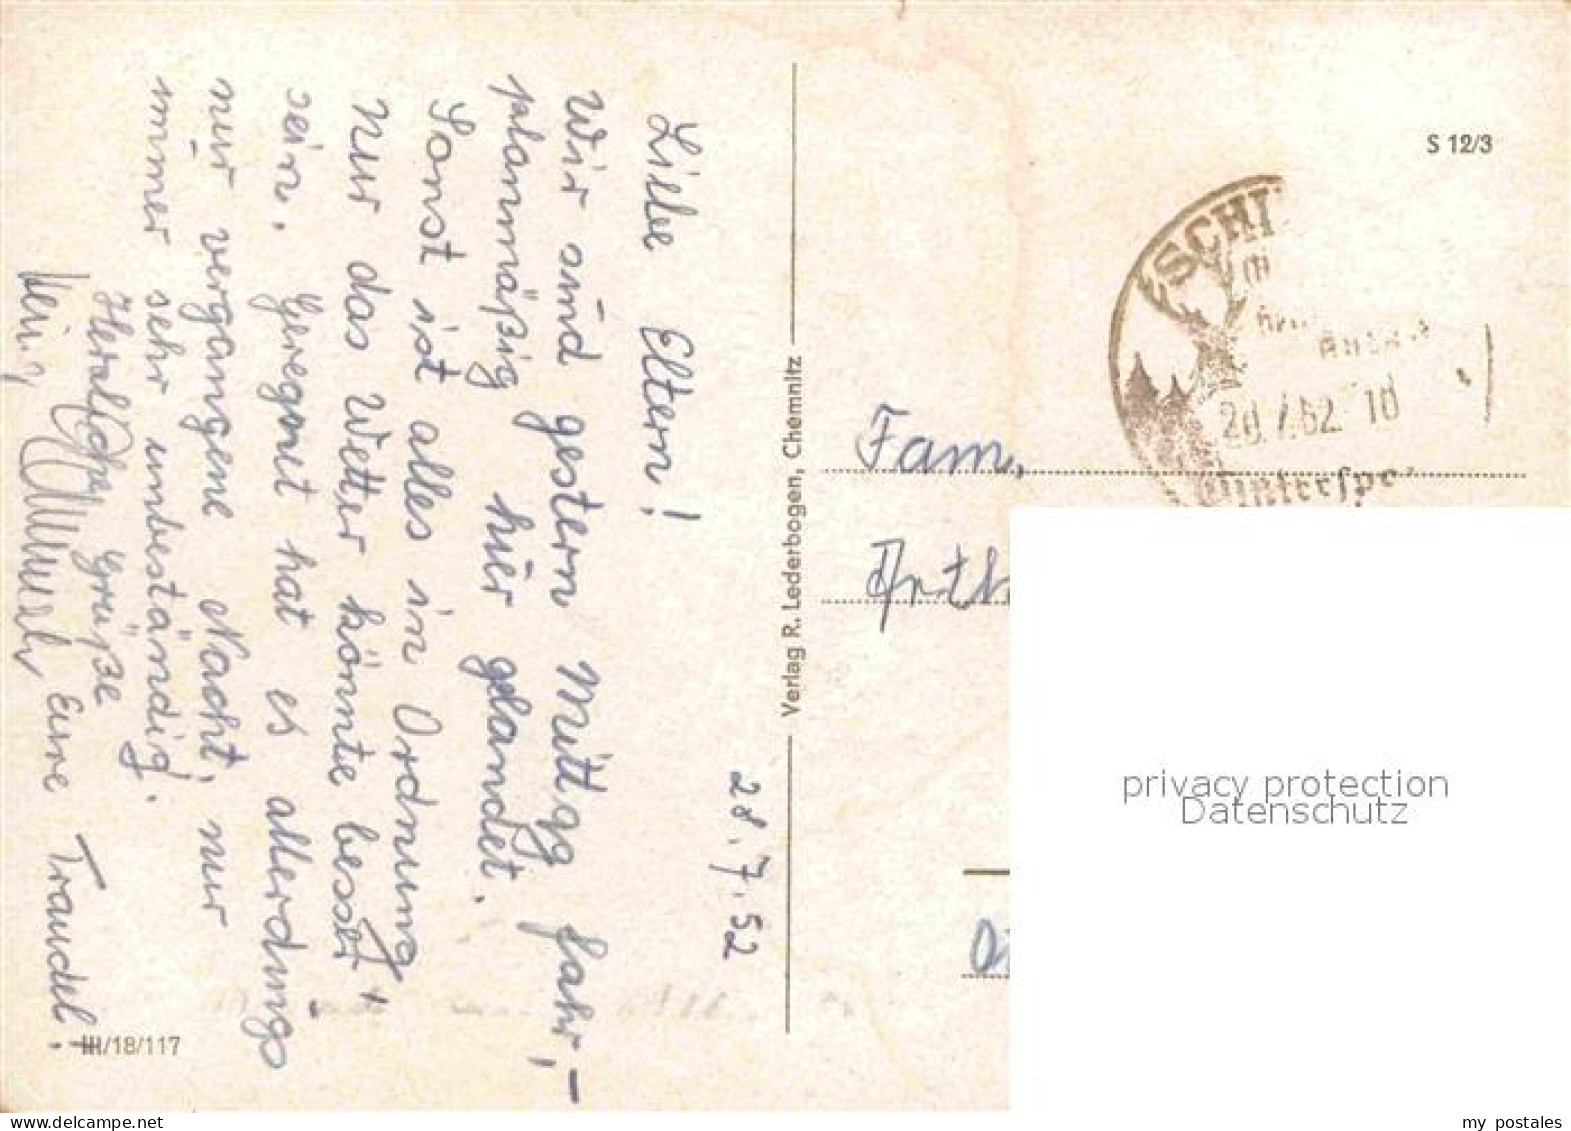 28.7.52
Liebe Eltern!
Wir sind gestern Mittag fahr-
planmäßig hier gelandet.
Sonst ist alles in Ordnung,
nur das Wetter könnte besser
sein. Geregnet hat es allerdings
nur vergangene Nacht, nur
immer sehr unbeständig.
Herzliche Grüße
Eure Traudel.
III/18/117
Verlag R. Lederbogen, Chemnitz
S 12/3
SCHI
28.7.52. 10
Winterspo
Fam.
Arth
privacy protection
Datenschutz
delcampe.net
my_postales